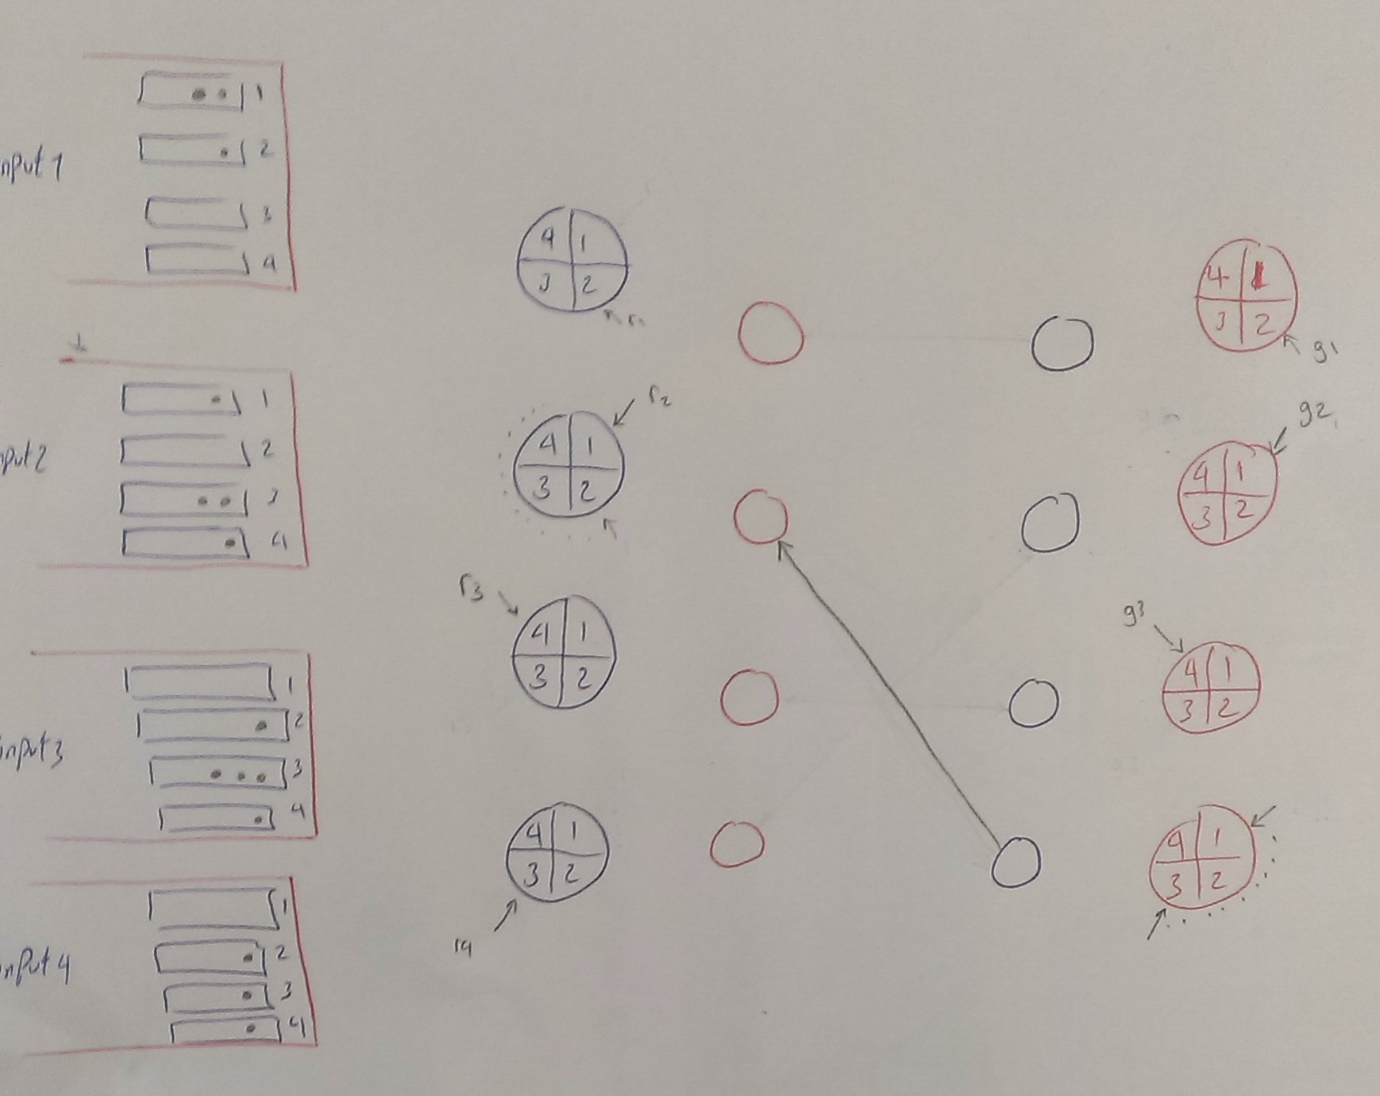 nput 1
1
2
3
4
nput2
1
2
3
4
input3
1
2
3
4
input4
1
2
3
4
4 1
3 2
r1
r2
4 1
3 2
r3
4 1
3 2
4 1
3 2
r4
4 1
3 2
g1
g2
4 1
3 2
g3
4 1
3 2
4 1
3 2